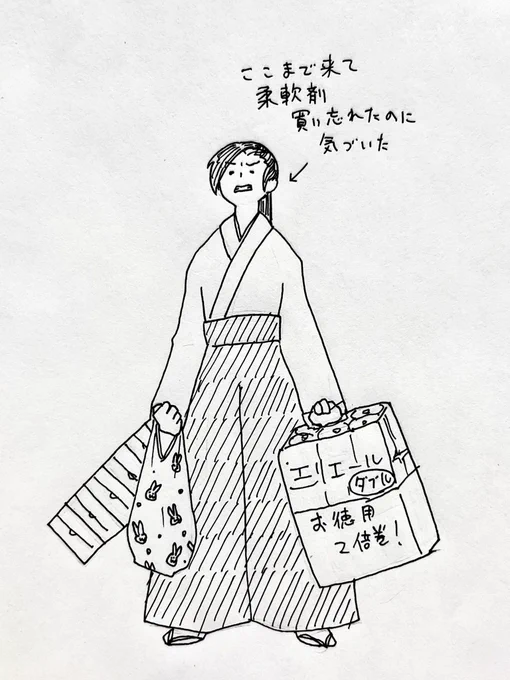 ここまで来て
柔軟剤
買い忘れたのに
気づいた
エリエール
ダブル
お徳用
2倍巻！